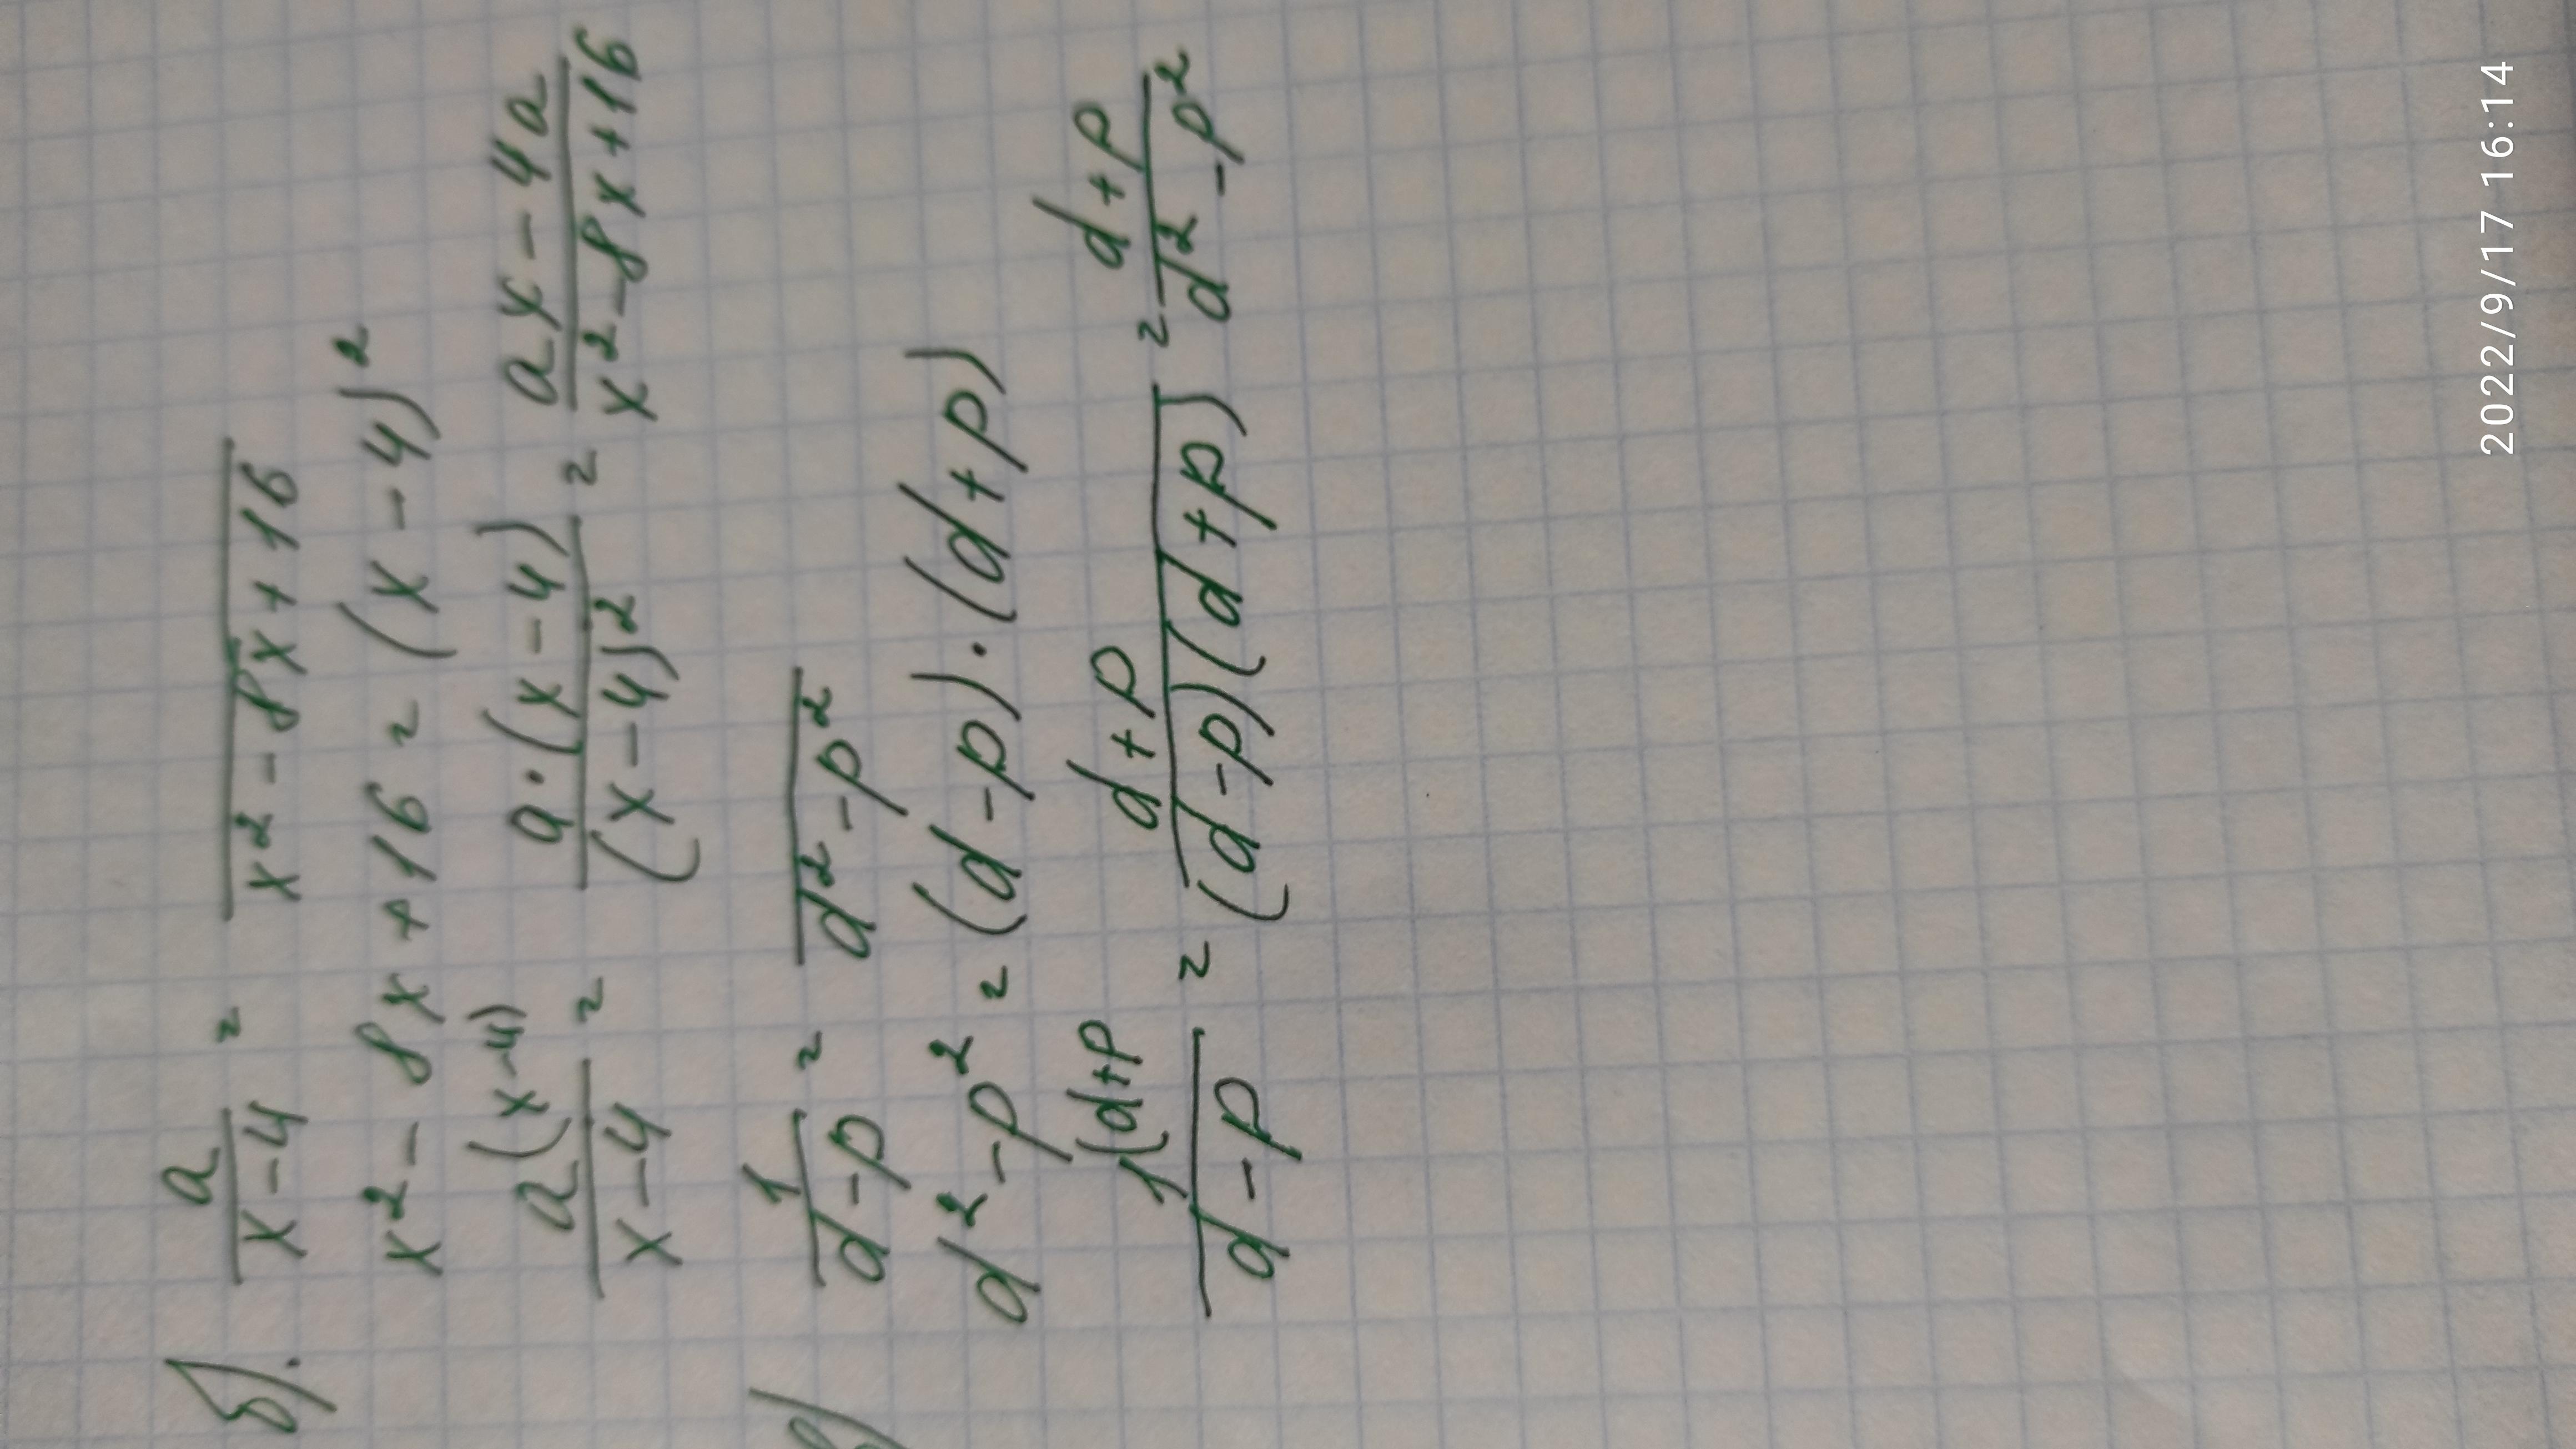 б). a/(x-4) = /(x²-8x+16)
x²-8x+16 = (x-4)²
a(x-4)/(x-4) = a·(x-4)/(x-4)² = (ax-4a)/(x²-8x+16)
1/(d-p) = /(d²-p²)
d²-p² = (d-p)·(d+p)
1(d+p/(d-p) = (d+p)/((d-p)(d+p)) = (d+p)/(d²-p²)
2022/9/17 16:14